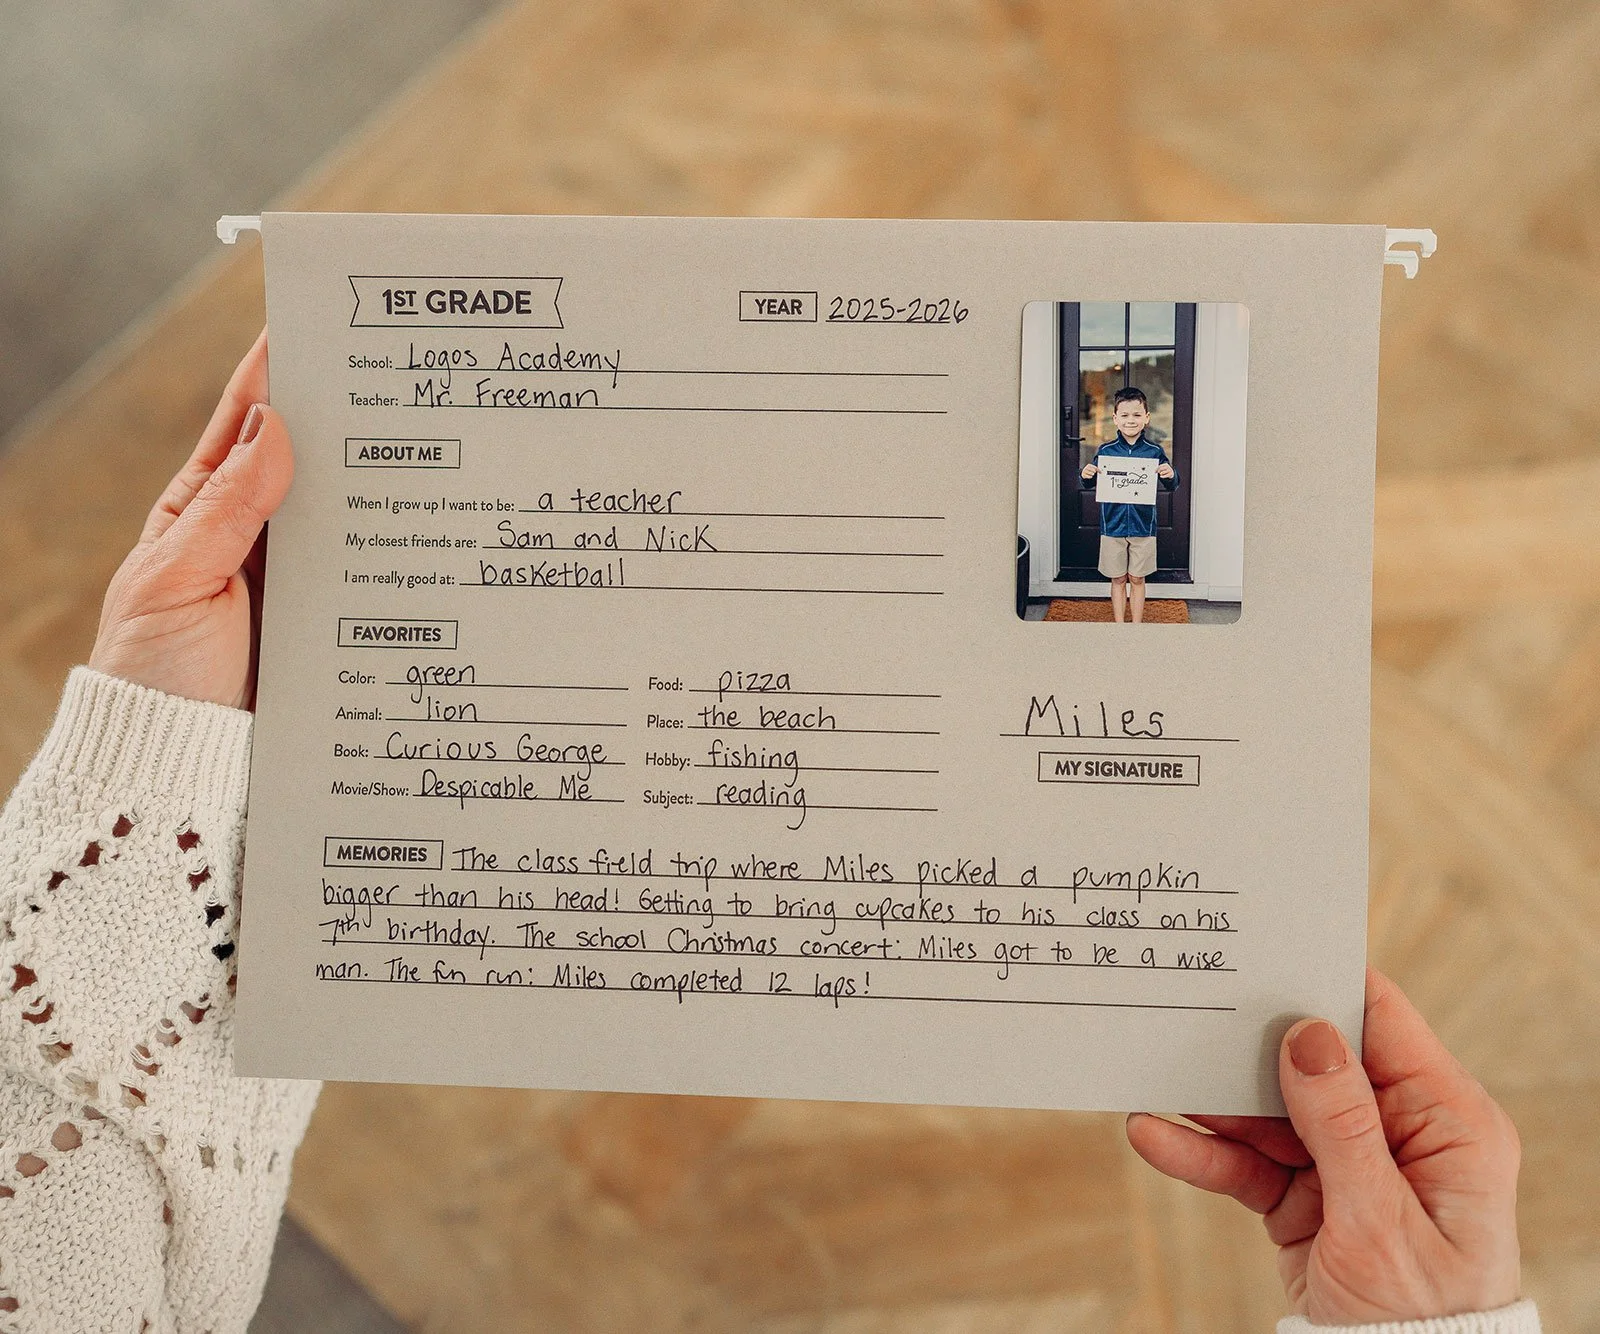 1ST GRADE
YEAR 2025-2026
School: Logos Academy
Teacher: Mr. Freeman
ABOUT ME
When I grow up I want to be: a teacher
My closest friends are: Sam and Nick
I am really good at: basketball
FAVORITES
Color: green
Food: pizza
Animal: lion
Place: the beach
Book: Curious George
Hobby: fishing
Movie/Show: Despicable Me
Subject: reading
1st grade
Miles
MY SIGNATURE
MEMORIES The class field trip where Miles picked a pumpkin
bigger than his head! Getting to bring cupcakes to his class on his
7th birthday. The school Christmas concert: Miles got to be a wise
man. The fun run: Miles completed 12 laps!